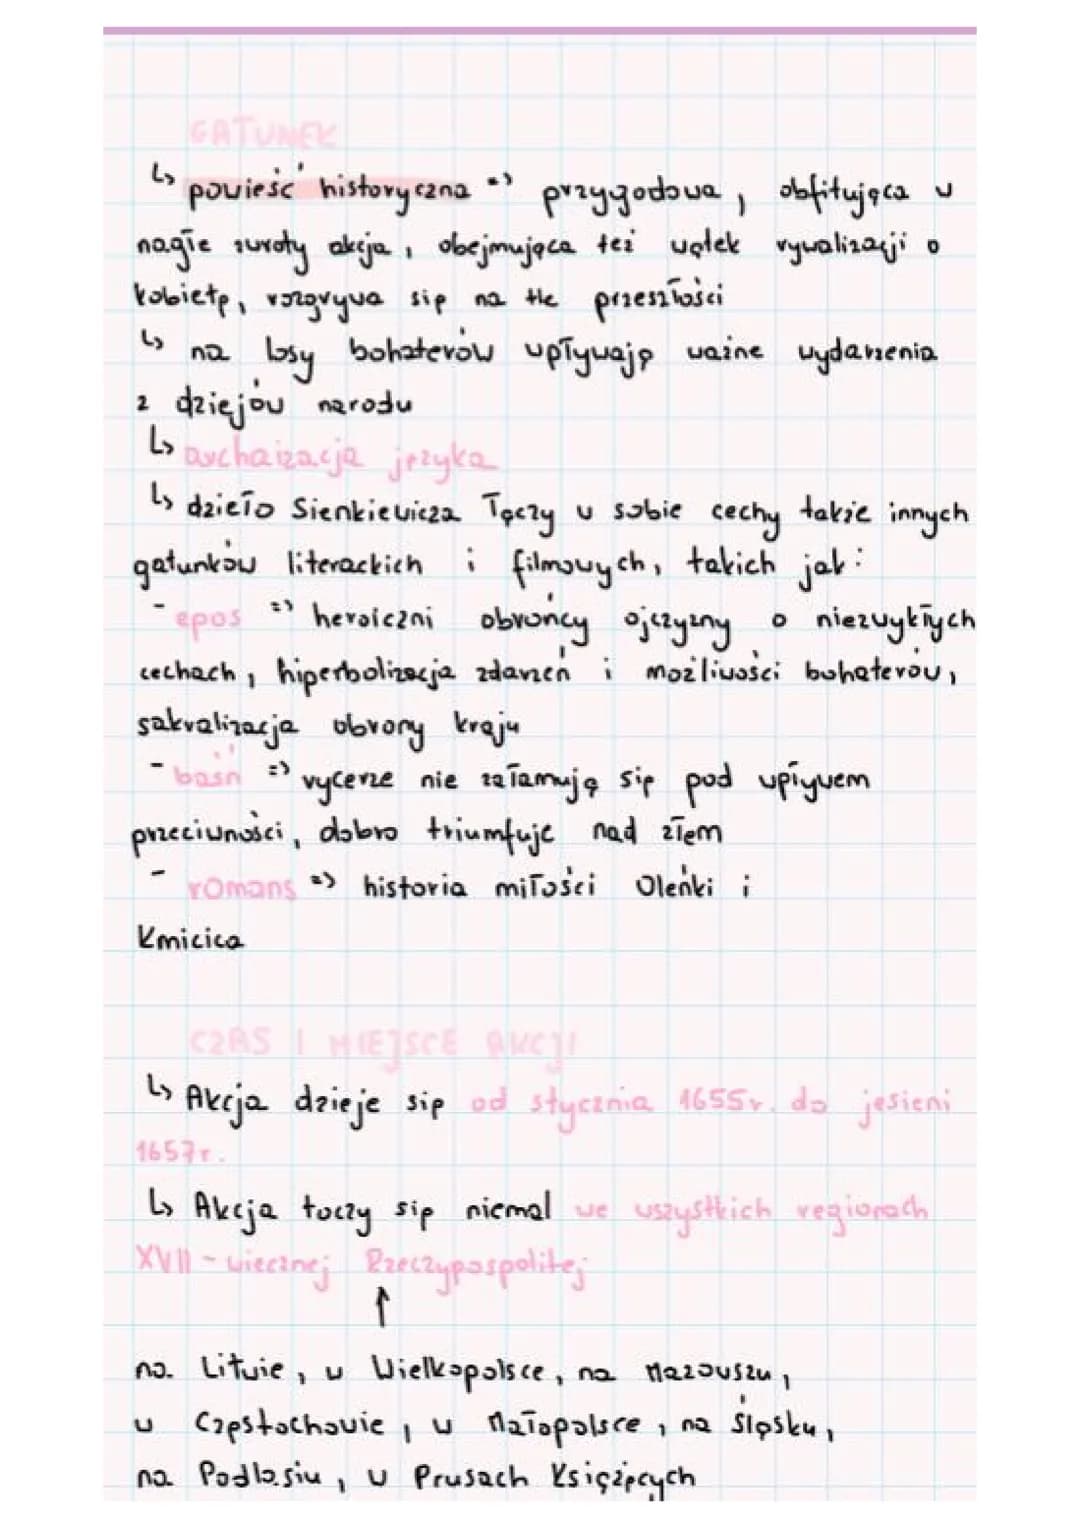 GATUNEK
↳ powieść historyczna => przygodowa, obfitująca w
nagłe zwroty akcja, obejmująca też wątek rywalizacji o
kobietę, rozgrywa się na tle przeszłości
↳ na losy bohaterów wpływają ważne wydarzenia
z dziejów narodu
↳ archaizacja języka
↳ dzieło Sienkiewicza łączy w sobie cechy także innych
gatunków literackich i filmowych, takich jak:
- epos => heroiczni obrońcy ojczyzny o niezwykłych
cechach, hiperbolizacja zdarzeń i możliwości bohaterów,
sakralizacja obrony kraju
- baśń => rycerze nie załamują się pod wpływem
przeciwności, dobro triumfuje nad złem
- romans => historia miłości Oleńki i
Kmicica
CZAS I MIEJSCE AKCJI
↳ Akcja dzieje się od stycznia 1655r. do jesieni
1657r.
↳ Akcja toczy się niemal we wszystkich regionach
XVII-wiecznej Rzeczypospolitej
↑
na Litwie, w Wielkopolsce, na Mazowszu,
w Częstochowie, w Małopolsce, na Śląsku,
na Podlasiu, w Prusach Książęcych